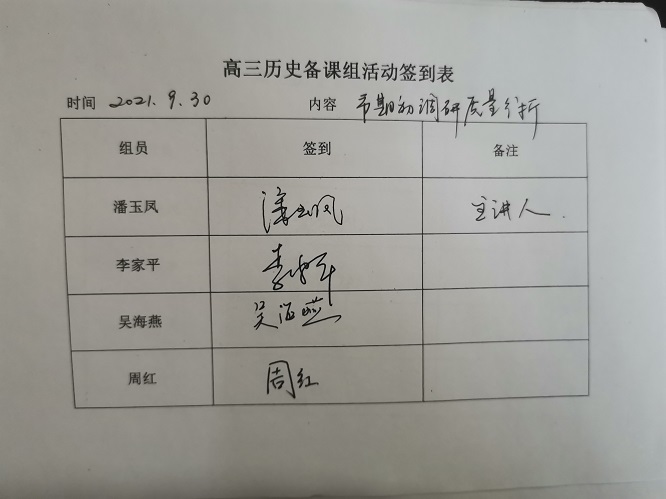 高三历史备课组活动签到表
时间 2021.9.30 内容 市期初调研质量分析
组员 签到 备注
潘玉凤 潘玉凤 主讲人.
李家平 李家平
吴海燕 吴海燕
周红 周红